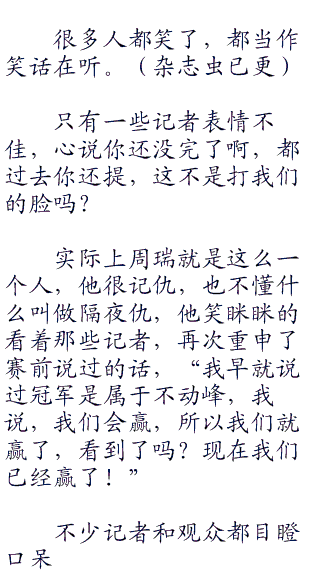 很多人都笑了，都当作
笑话在听。（杂志虫已更）
只有一些记者表情不
佳，心说你还没完了啊，都
过去你还提，这不是打我们
的脸吗？
实际上周瑞就是这么一
个人，他很记仇，也不懂什
么叫做隔夜仇，他笑眯眯的
看着那些记者，再次重申了
赛前说过的话，“我早就说
过冠军是属于不动峰，我
说，我们会赢，所以我们就
赢了，看到了吗？现在我们
已经赢了！”
不少记者和观众都目瞪
口呆